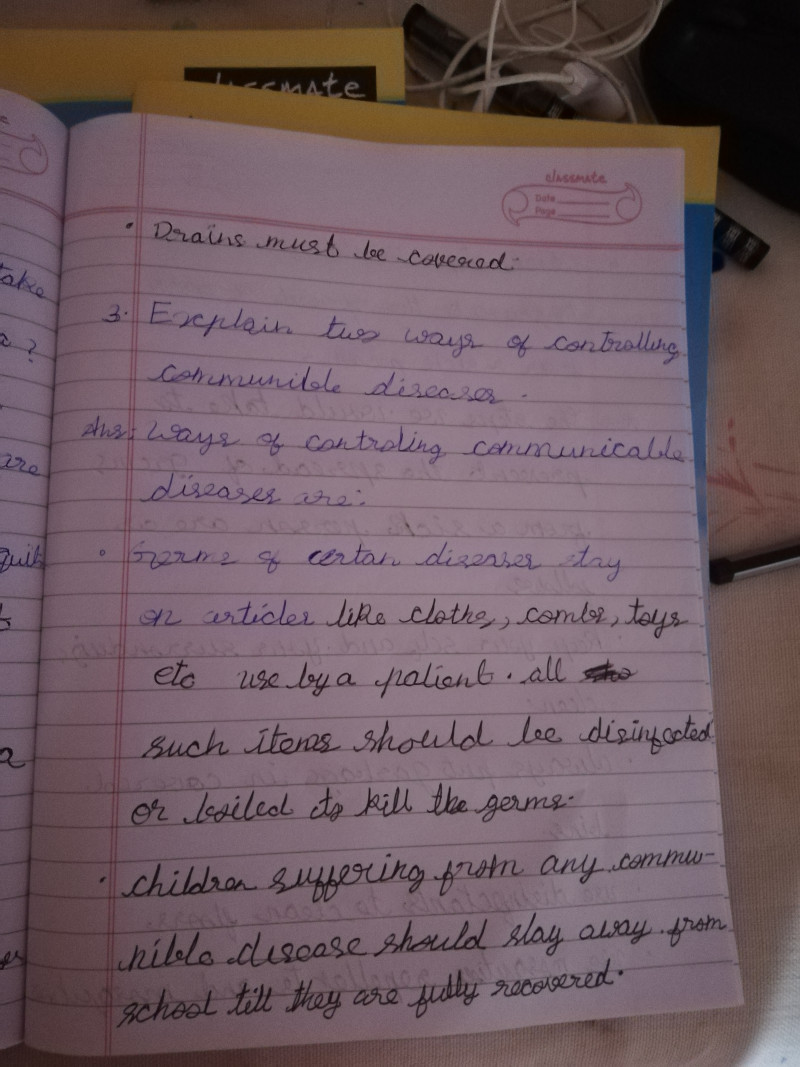 classmate
classmate
Date
Page
• Drains must be covered.
3. Explain two ways of controlling
communible diseases.
Ans: Ways of controling communicable
diseases are:
• Germs of certan diseases stay
on articles like clothe, combs, toys
etc use by a patient. all
such items should be disinfected
or boiled to kill the germs.
• children suffering from any commu-
nible disease should stay away from
school till they are fully recovered.
take
?
are
a